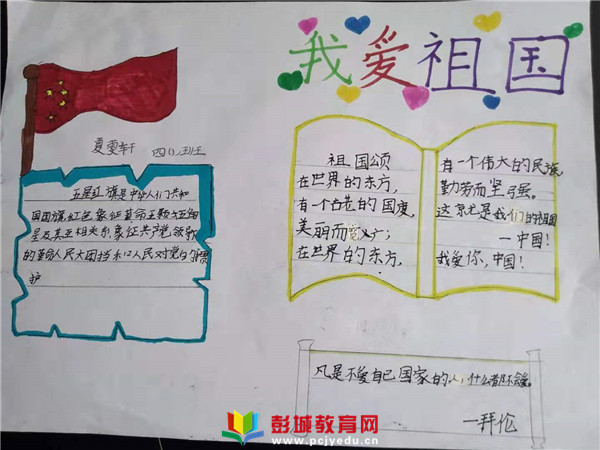 我爱祖国
夏雯轩 四(1)班
五星红旗是中华人们共和
国国旗,红色象征革命,五颗大五角
星及其互相关系,象征共产党领导
的革命人民大团结和人民对党的拥
护
祖国颂
在世界的东方,
有一个古老的国度,
美丽而宽广;
在世界的东方,
有一个伟大的民族,
勤劳而坚强。
这就是我们的祖国
一中国!
我爱你,中国!
凡是不爱自己国家的人,什么都不会爱
一拜伦
彭城教育网
www.pcjyedu.cn